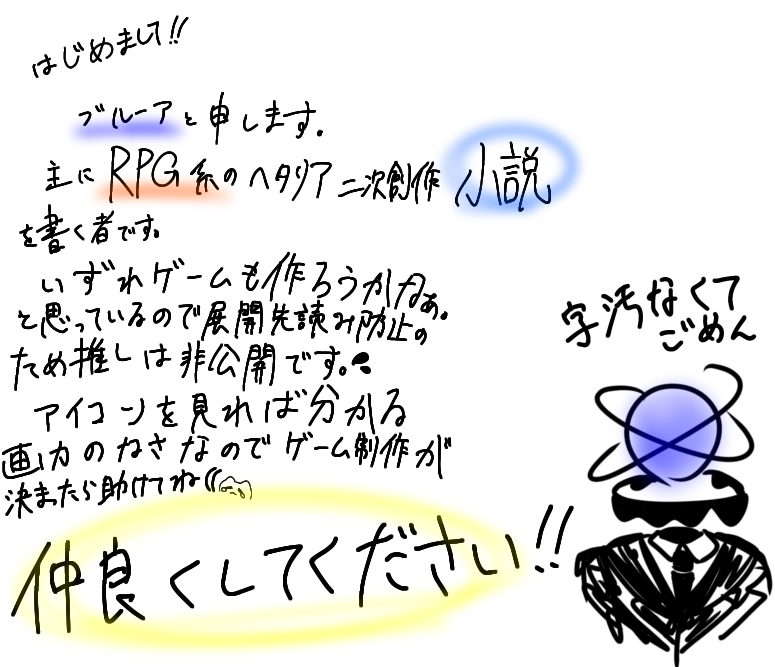 はじめまして!!
ブルーアと申します。
主にRPG系のヘタリア二次創作小説
を書く者です。
いずれゲームも作ろうかなぁ。
と思っているので展開先読み防止の
ため推しは非公開です。
アイコンを見れば分かる
画力のねさなのでゲーム制作が
決まったら助けてね
仲良くしてください!!
字汚なくて
ごめん